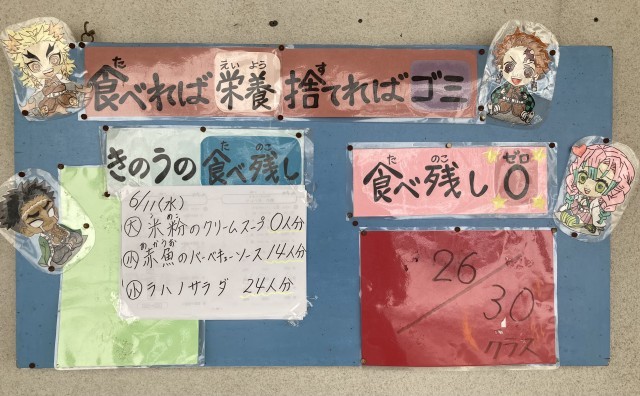 食べれば栄養 捨てればゴミ
きのうの食べ残し
6/11(水)
大 米粉のクリームスープ 0人分
小 赤魚のバーベキューソース 14人分
小 ラハノサラダ 24人分
食べ残し0
26/30
クラス